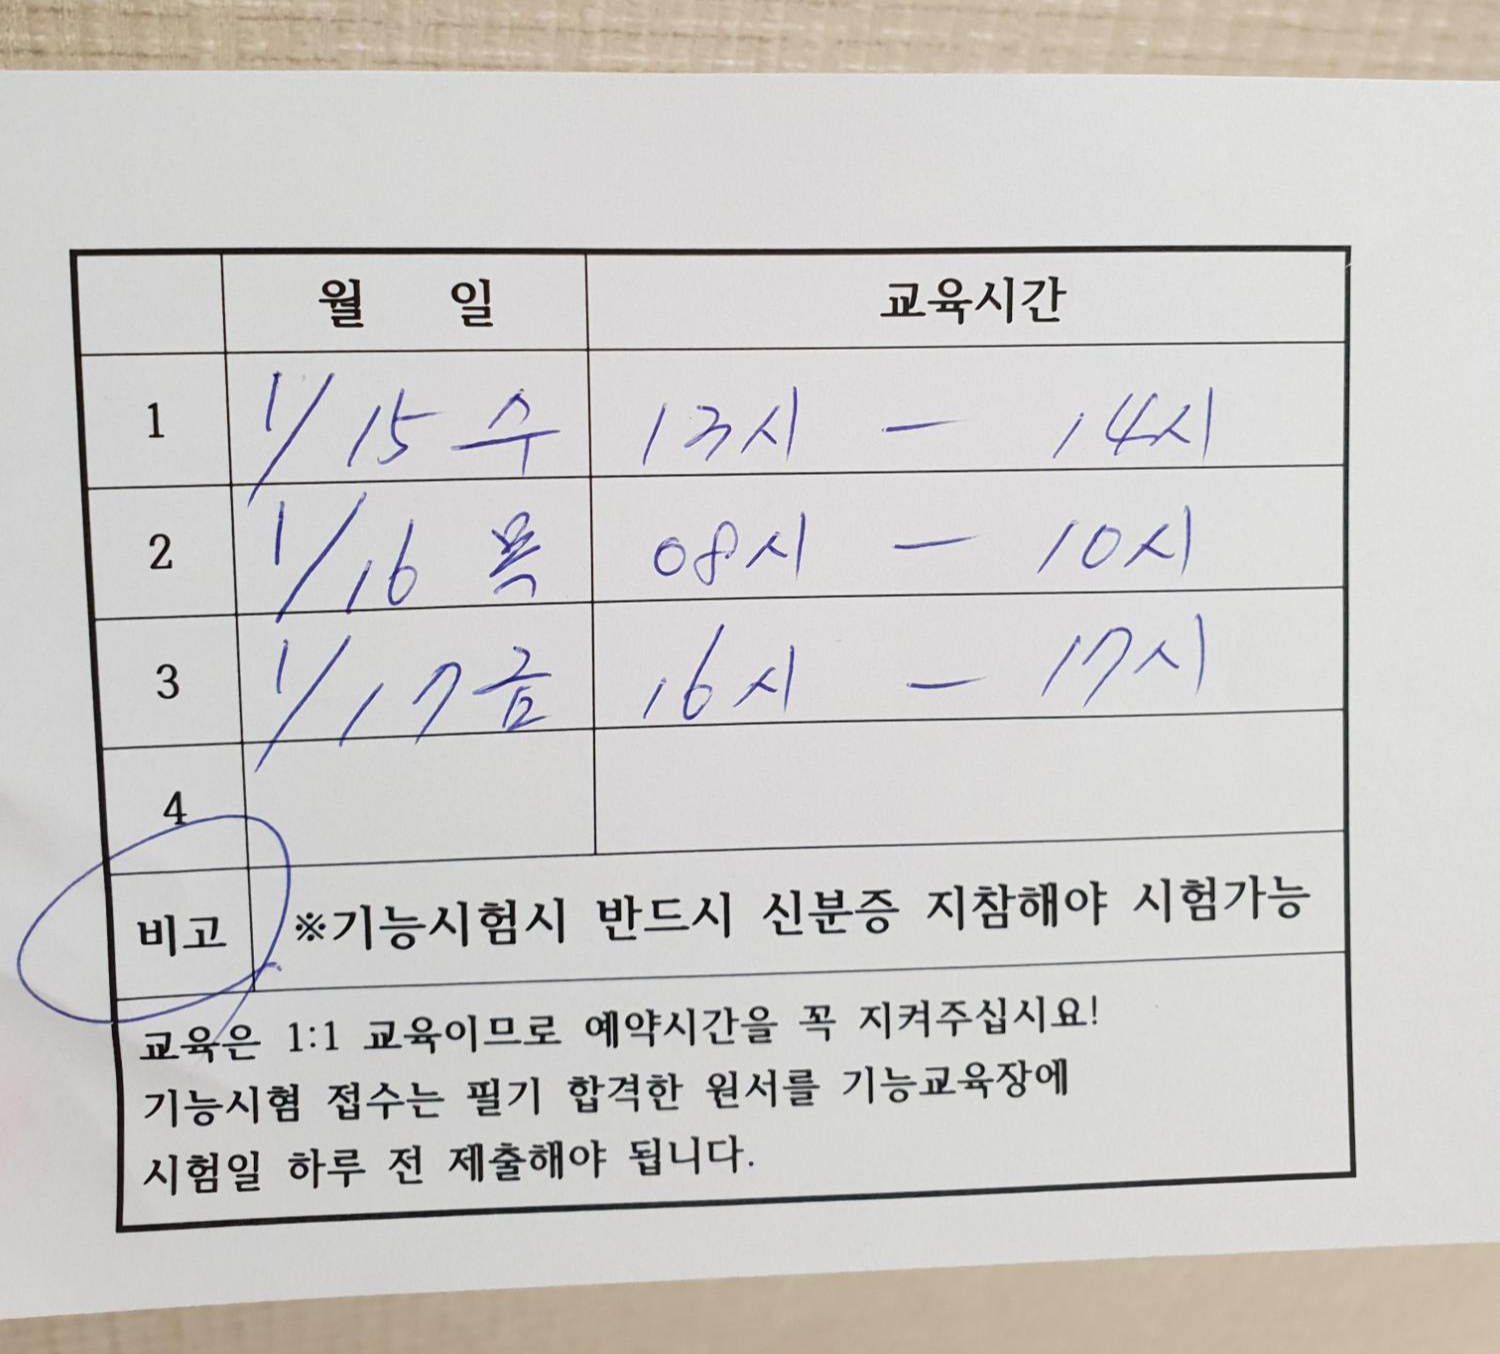 월 일 교육시간
1 1/15 수 13시 - 14시
2 1/16 목 08시 - 10시
3 1/17 금 16시 - 17시
4
비고 ※기능시험시 반드시 신분증 지참해야 시험가능
교육은 1:1 교육이므로 예약시간을 꼭 지켜주십시요!
기능시혐 접수는 필기 합격한 원서를 기능교육장에
시험일 하루 전 제출해야 됩니다.